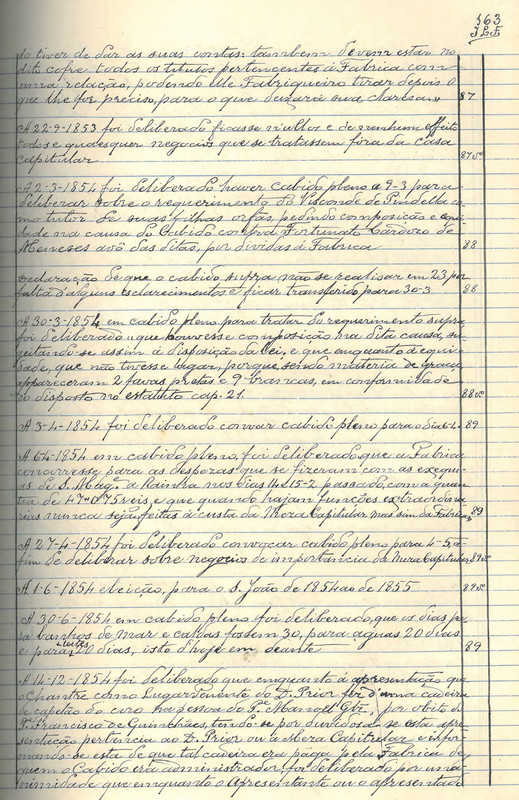 163
J L F
do tiver de dar as suas contas: tambem devem estar no
dito cofre todos os titulos pertencentes á Fabrica com
uma relação, podendo elle Fabriqueiro tirar depois o
que lhe for preciso, para o que deixará sua claresa."
87
A 22-9-1853 foi deliberado ficasse nullos e de nenhum effeito
todos e quaesquer negocios que se tratassem fóra da casa
capitular
87vº
A 2-3-1854 foi deliberado haver cabido pleno a 9-3 para
deliberar sobre o requerimento do Visconde de Pindella co-
mo tutor de suas filhas orfãs, pedindo composição e equi-
dade na causa do Cabido contra Fortunato Cardozo de
Meneses avô das ditas, por dividas á Fabrica
88
Declaração de que o cabido supra não se realisar em 23 por
falta d'alguns esclarecimentos e ficar transferido para 30-3
88
A 30-3-1854 em cabido pleno para tratar do requerimento supra,
foi deliberado que houvesse composição na dita causa, su-
geitando-se assim á disposição da lei, e que emquanto á equi-
dade, que não tivesse lugar, porque, sendo materia de graça,
appareceram 2 favas pretas e 9 brancas, em conformidade
do disposto no estatuto cap. 21.
88vº
A 3-4-1854 foi deliberado convocar cabido pleno para o dia 6-4
89
A 6-4-1854 em cabido pleno, foi deliberado que a Fabrica
concorresse para as despezas que se fizeram com as exequi-
as de S. Mag.e a Rainha nos dias 14 e 15-2 passado, com a quan-
tia de 47$075 reis, e que quando hajam funcções extraordina-
rias nunca sejão feitas á custa da Meza Capitular, mas sim da Fabrica
89
A 27-4-1854 foi deliberado convocar cabido pleno para 4-5, a
fim de deliberar sobre negocio de importancia da Meza Capitular
89vº
A 1-6-1854 eleição, para o S. João de 1854 ao de 1855
89vº
A 30-6-1854 em cabido pleno foi deliberado, que os dias pa-
ra banhos de mar e caldas fossem 30, para aguas 20 dias
e para 20 dias, isto d'hoje em deante
89
A 14-12-1854 foi deliberado que emquanto á apresentação que
o Chantre como Lugar Tenente do D. Prior fez d'uma cadeira
de capellão do coro na pessoa do P.e Manoel Glz, por obito de
P.e Francisco de Guimarães, tendo-se por duvidoso se esta apre-
sentação pertencia ao D. Prior ou á Meza Capitular e infor-
mando-se esta de que tal cadeira era paga pela Fabrica de
quem o Cabido era administrador, foi deliberado por una-
nimidade que emquanto o Apresentante ou o apresentado